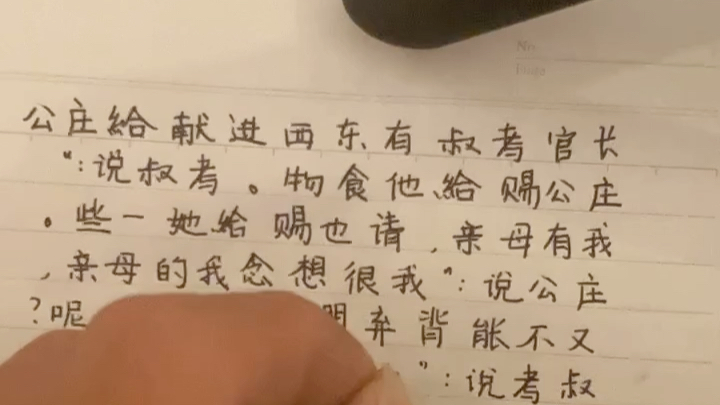 No.
Page
长官考叔有东西进献給庄公
庄公赐給他食物。考叔说:“
我有母亲,请也赐給她一些。
庄公说:“我很想念我的母亲,
又不能背弃 呢?
叔考说:“